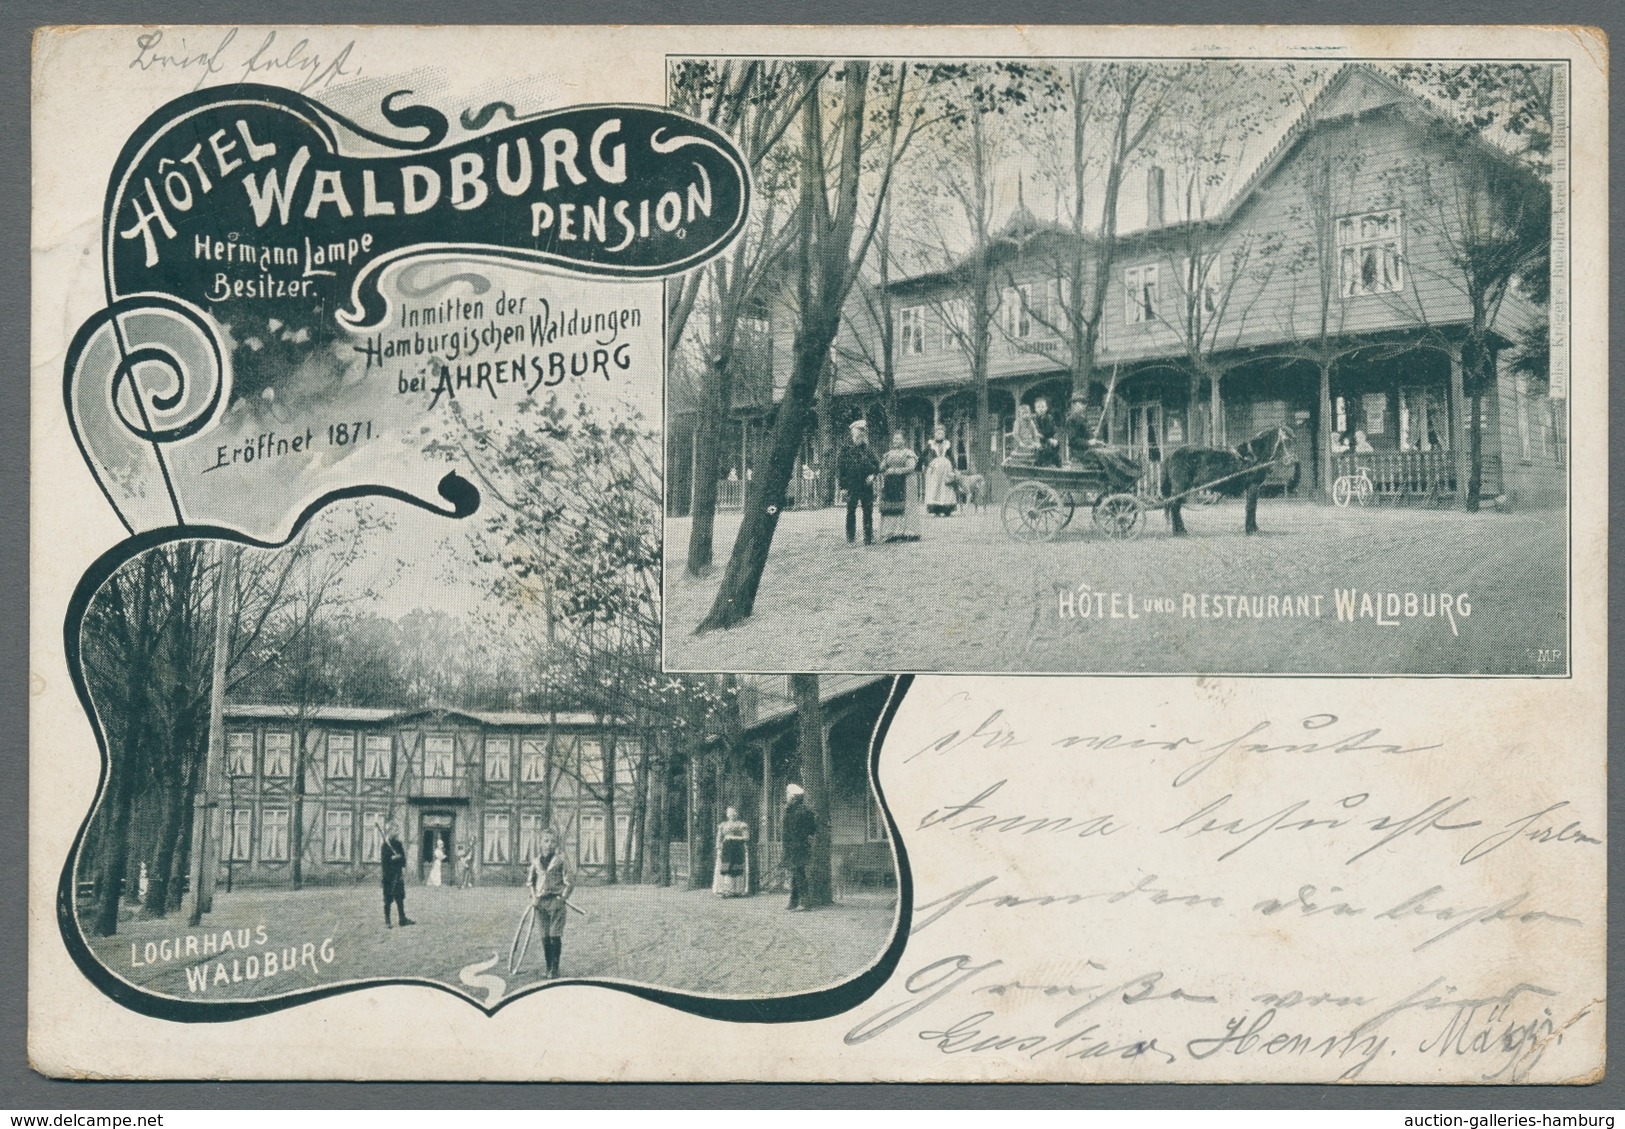 Brief folgt.
HÔTEL
WALDBURG
PENSION
Hermann Lampe
Besitzer.
Inmitten der
Hamburgischen Waldungen
bei AHRENSBURG
Eröffnet 1871.
HÔTEL UND RESTAURANT WALDBURG
M.P.
LOGIRHAUS
WALDBURG
Da wir heute
Anna besucht haben
senden die beste
Grüße von hier
Gustav, Henny.
delcampe.net
auction-galleries-hamburg